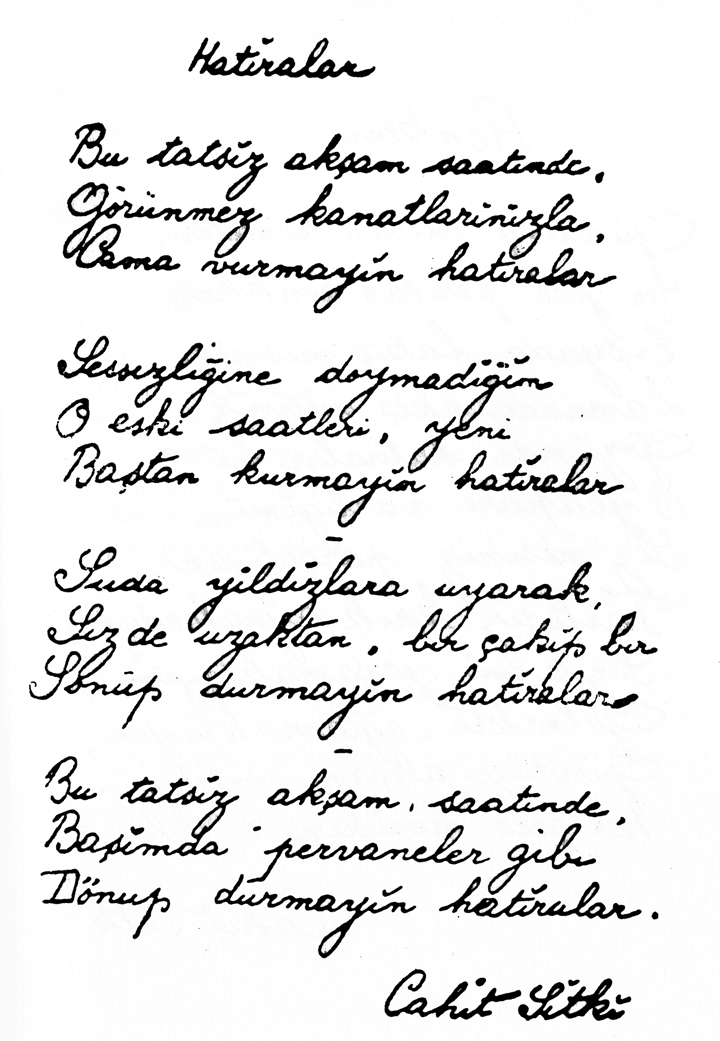 Hatıralar
Bu tatsız akşam saatinde,
Görünmez kanatlarınızla,
Cama vurmayın hatıralar
Sessizliğine doymadığım
O eski saatleri, yeni
Baştan kurmayın hatıralar
Suda yıldızlara uyarak,
Siz de uzaktan, bir çakıp bir
Sönüp durmayın hatıralar
Bu tatsız akşam, saatinde,
Başımda pervaneler gibi
Dönüp durmayın hatıralar.
Cahit Sıtkı